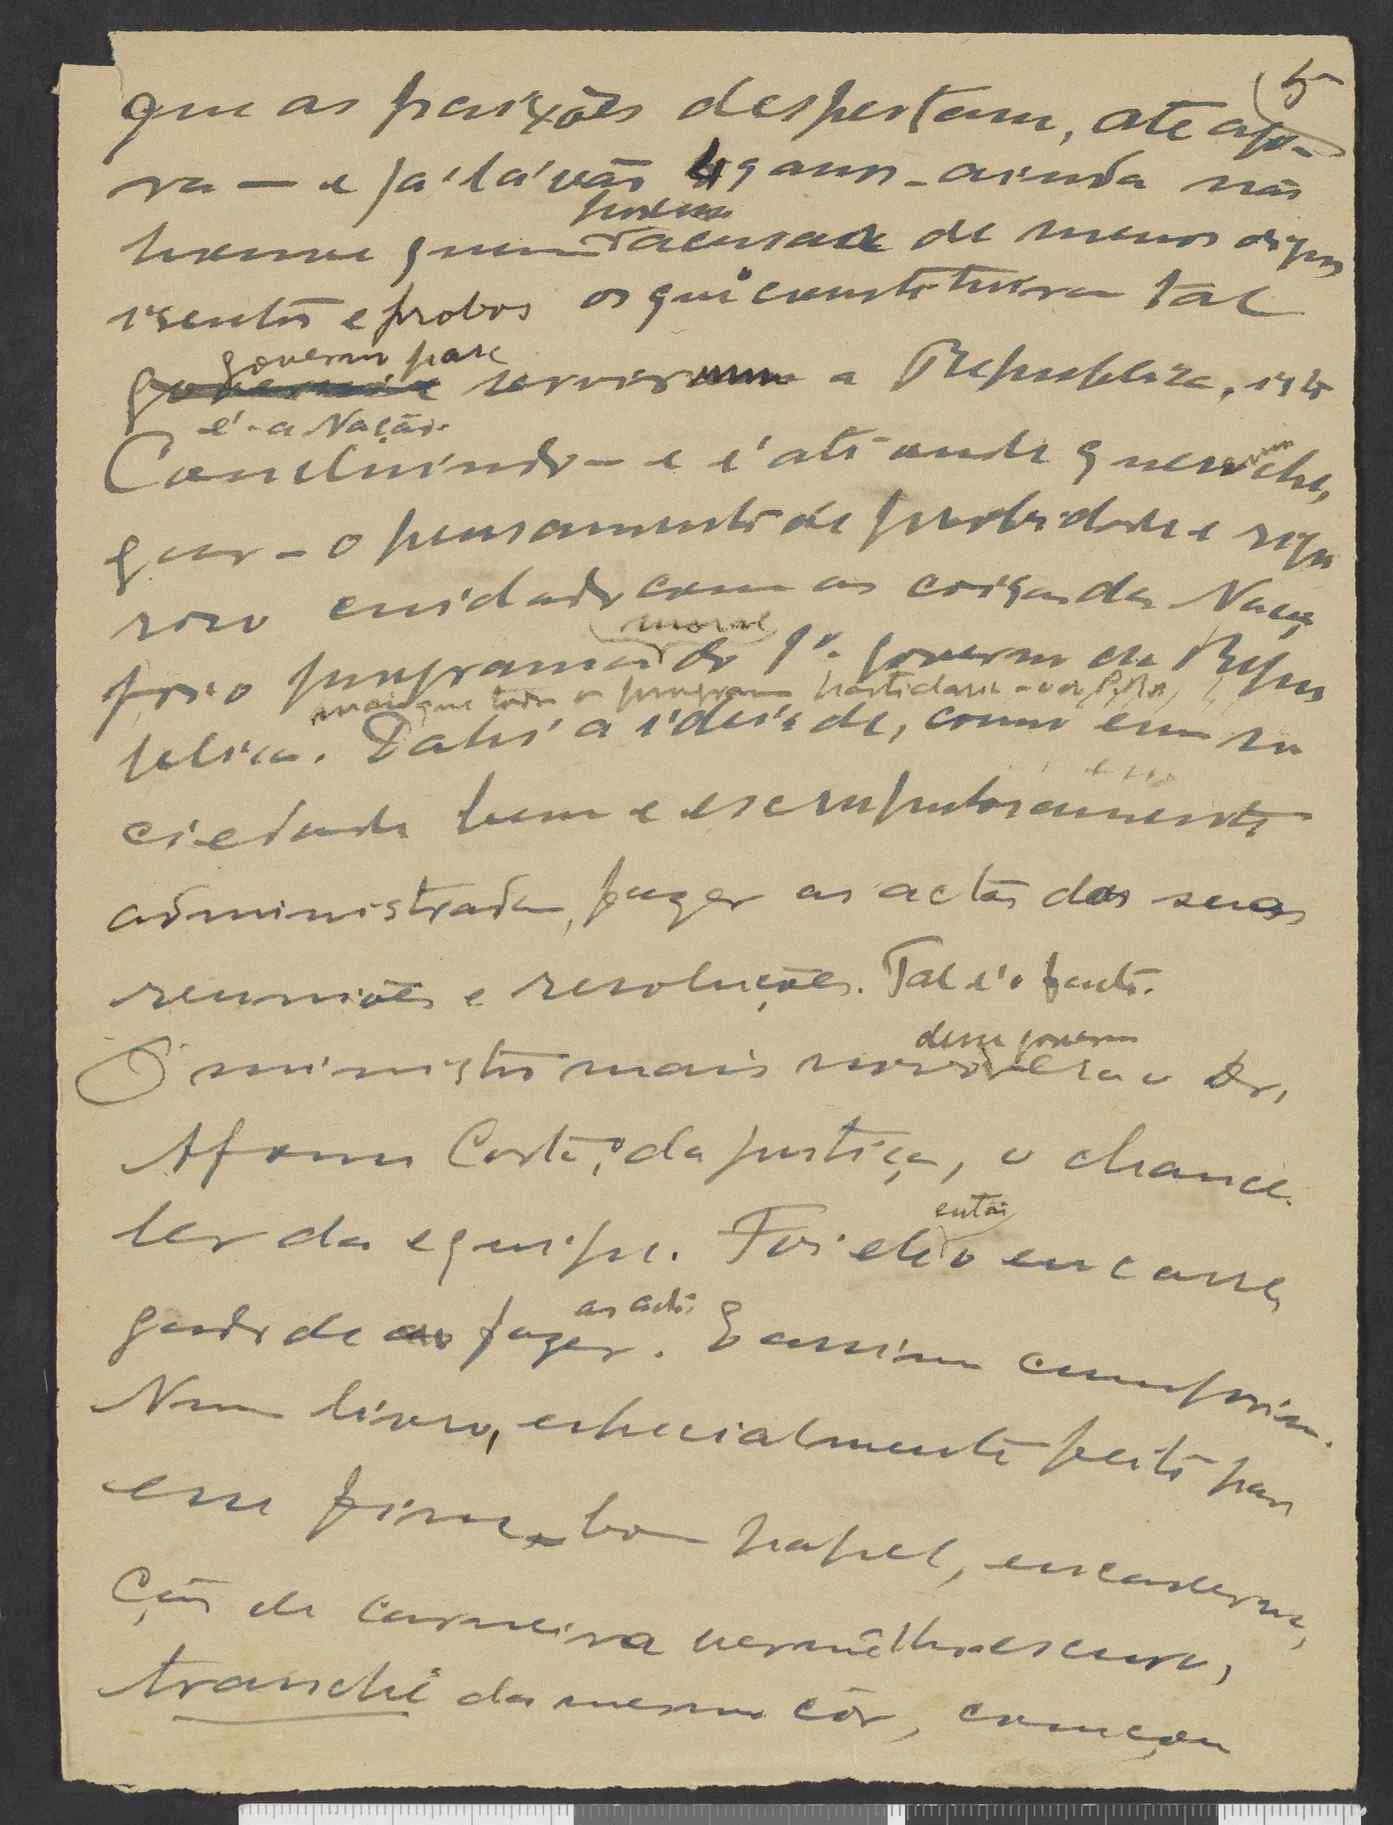 5
que as paixões despertam, até ago-
ra — e já lá vão 49 anos - ainda não
houve quem pudesse acusar de menos dignos
isentos e probos os que constituiram tal
governo para servir a Republica, isto
é - a Nação.
Concluindo - e é até onde quero che,
gar - o pensamento de probidade e rigo
roso cuidado com as coisas da Nação
foi o programa moral do 1º governo da Repu
mais que todo o programa partidario
blica. Dahi a ideia de, como em so
ciedade bem e escrupulosamente
administrada, fazer as actas das suas
reuniões e resoluções. Tal é o facto.
O ministro mais novo desse governo era o Dr.
Afonso Costa, o da justiça, o chance-
ler da equipe. Foi ele então o encarre,
gado de fazer as actas. E assim cumpriu.
Num livro, especialmente feito para
esse fim, bom papel, encaderna,
ção de carneira vermelho escuro,
tranche da mesma côr, começou